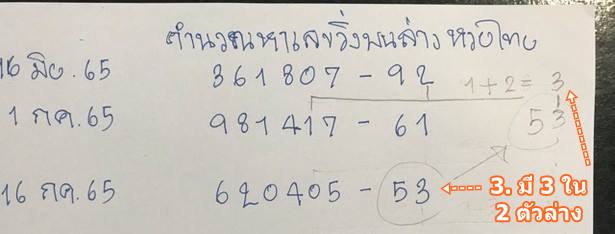 คำนวณหาเลขวิ่งบนล่าง หวยไทย
16 มิย. 65 361807 - 92 1+2= 3
1 กค. 65 981417 - 61 53
16 กค. 65 620405 - 53 3. มี 3 ใน
2 ตัวล่าง